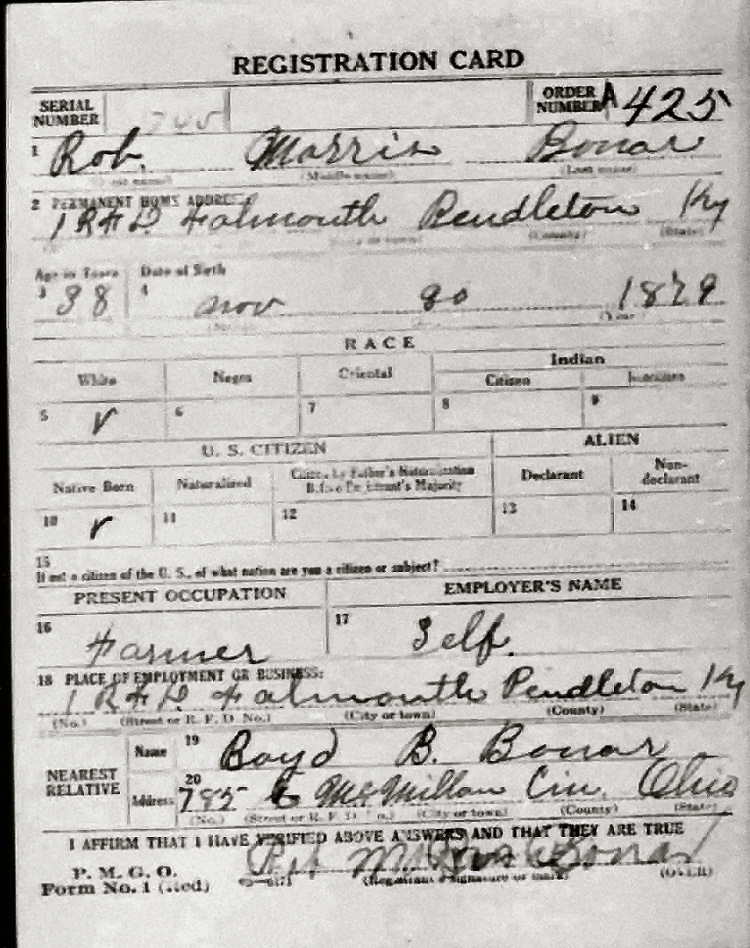 REGISTRATION CARD
SERIAL NUMBER ORDER NUMBER A425
1 Rob. Morris Bonar
(Middle name) (Last name)
2 PERMANENT HOME ADDRESS:
1 RFD Falmouth Pendleton Ky
(County) (State)
Age in Years Date of Birth
3 38 4 Nov 1879
RACE
White Negro Oriental Indian
Citizen
5 ✓ 6 7 8 9
U. S. CITIZEN ALIEN
Native Born Naturalized Citizen by Father's Naturalization Before Registrant's Majority Declarant Non-declarant
10 ✓ 11 12 13 14
15
If not a citizen of the U. S., of what nation are you a citizen or subject?
PRESENT OCCUPATION EMPLOYER'S NAME
16 Farmer 17 Self.
18 PLACE OF EMPLOYMENT OR BUSINESS:
1 RFD Falmouth Pendleton Ky
(No.) (Street or R. F. D. No.) (City or town) (County) (State)
NEAREST RELATIVE
Name 19 Boyd B. Bonar
Address 20 785 E McMillan Cin. Ohio
(No.) (Street or R. F. D. No.) (City or town) (County) (State)
I AFFIRM THAT I HAVE VERIFIED ABOVE ANSWERS AND THAT THEY ARE TRUE
P. M. G. O.
Form No. 1 (Red) (Registrant's signature or mark) (OVER)